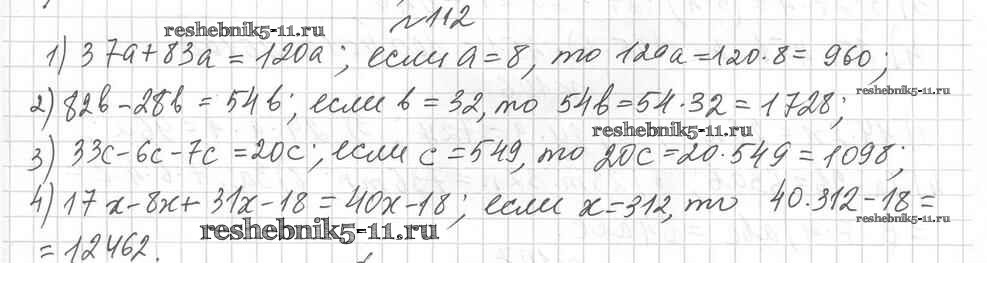 №112
reshebnik5-11.ru
1) 37a+83a=120a; если a=8, то 120a=120·8=960;
reshebnik5-11.ru
2) 82b-28b=54b; если b=32, то 54b=54·32=1728;
reshebnik5-11.ru
3) 33c-6c-7c=20c; если c=549, то 20c=20·549=1098;
4) 17x-8x+31x-18=40x-18; если x=312, то 40·312-18=
reshebnik5-11.ru
reshebnik5-11.ru
=12462.